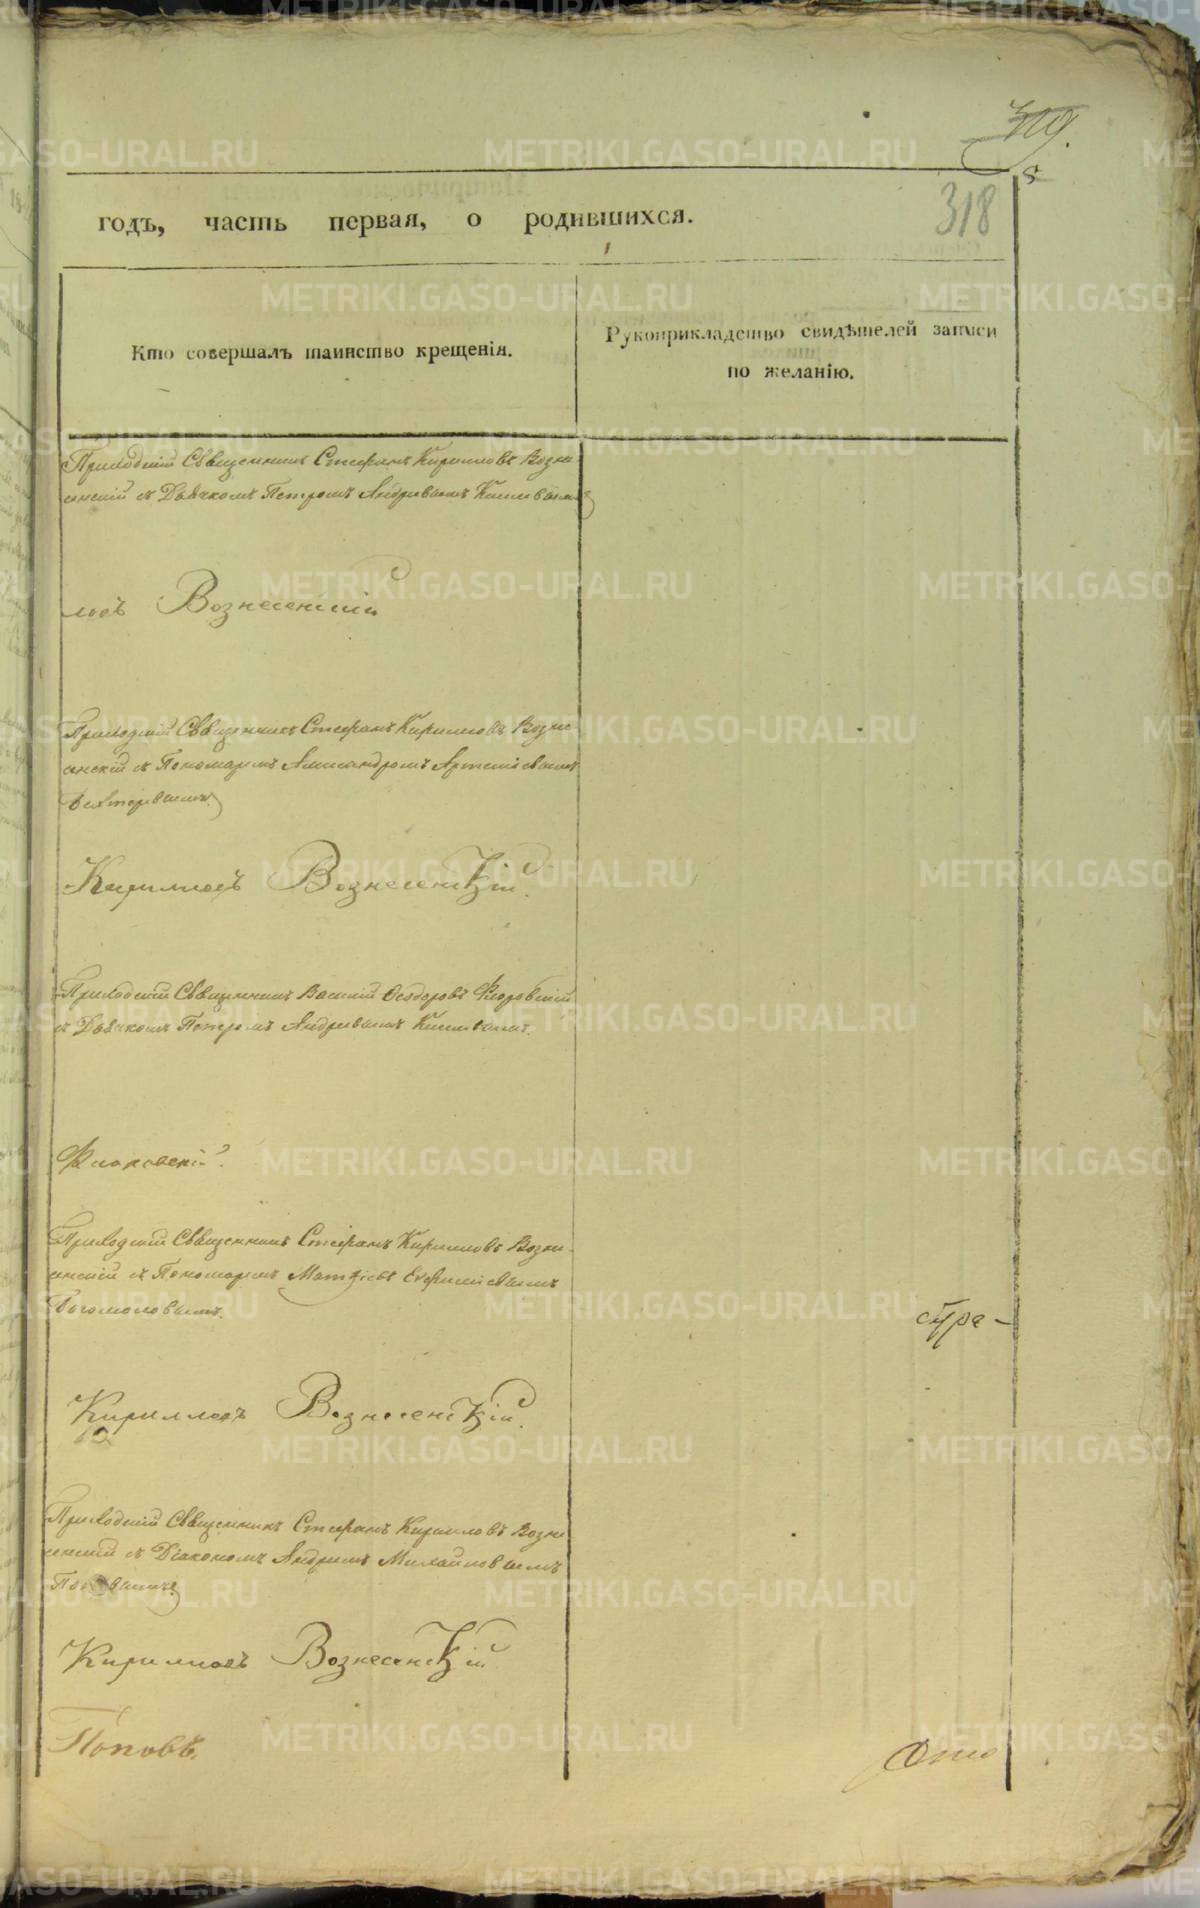 319.
318
годъ, часть первая, о родившихся.
Кто совершалъ таинство крещенія.
Рукоприкладство свидѣтелей записи
по желанію.
Приходскій Священникъ Стефанъ Кирилловъ Возне
сенскій съ Дьячкомъ Петромъ Андреевымъ
ловъ Вознесенскій
Приходскій Священникъ Стефанъ Кирилловъ Возне-
сенскій съ Пономаремъ Александромъ Артеміевымъ
Дехтеревымъ
Кирилловъ Вознесенскій.
Приходскій Священникъ Василій Ѳеодоровъ Флоровскій
съ Дьячкомъ Петромъ Андреевымъ
Приходскій Священникъ Стефанъ Кирилловъ Возне-
сенскій съ Пономаремъ Матѳіевъ Евфиміевымъ
Богомоловымъ.
стра-
Кирилловъ Вознесенскій.
Приходскій Священникъ Стефанъ Кирилловъ Возне
сенскій съ Діакономъ Андреемъ Михайловымъ
Поповымъ
Кирилловъ Вознесенскій.
Поповъ.
METRIKI.GASO-URAL.RU